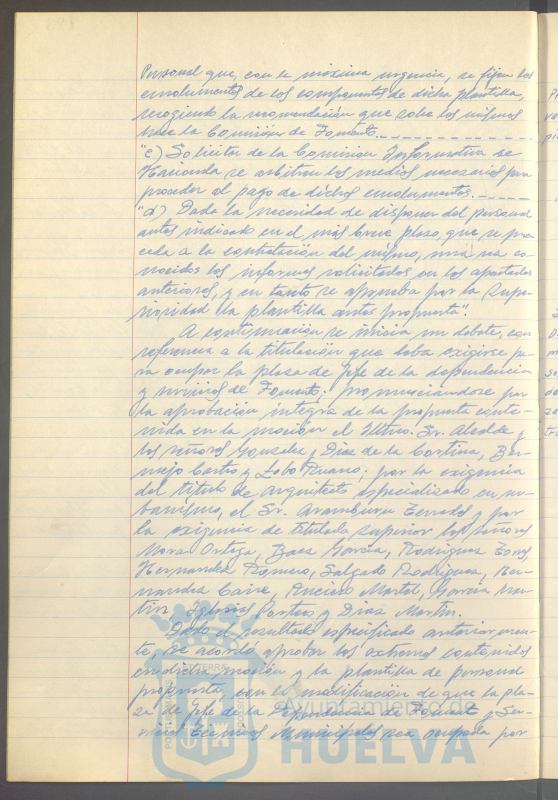 Personal que, con la máxima urgencia, se fijen los
emolumentos de los componentes de dicha plantilla,
recogiendo la recomendación que sobre los mismos
hace la Comisión de Fomento.
"c) Solicitar de la Comisión Informativa de
Hacienda se arbitren los medios necesarios para
proceder al pago de dichos emolumentos.
"d) Dada la necesidad de disponer del personal
antes indicado en el más breve plazo, que se pro
ceda a la contratación del mismo, una vez co-
nocidos los informes solicitados en los apartados
anteriores, y en tanto se aprueba por la Supe-
rioridad la plantilla antes propuesta".
A continuación se inicia un debate, con
referencia a la titulación que deba exigirse pa-
ra ocupar la plaza de Jefe de la dependencia
y servicios de Fomento; pronunciandose por
la aprobación integra de la propuesta conte-
nida en la moción el Iltmo. Sr. Alcalde y
los señores Gonzalez y Diaz de la Cortina, Ber
mejo Castro y Lobo Ruano; por la exigencia
del titulo de arquitecto especializado en ur-
banismo, el Sr. Aramburu Terrades y por
la exigencia de titulado superior los señores
Mora Ortega, Baea García, Rodriguez Torres,
Hernandez Romero, Salgado Rodriguez, Her-
nandez Caire, Anciso Martel, Garcia Mar-
tin, Iglesias Portero y Diaz Martin.
Dado el resultado especificado anteriormen-
te, se acordó aprobar los extremos contenidos
en dicha moción y la plantilla de personal
propuesta, con la modificación de que la pla-
za de Jefe de la Dependencia de Fomento y Ser-
vicios Técnicos Municipales sea ocupada por
Ayuntamiento de
HUELVA